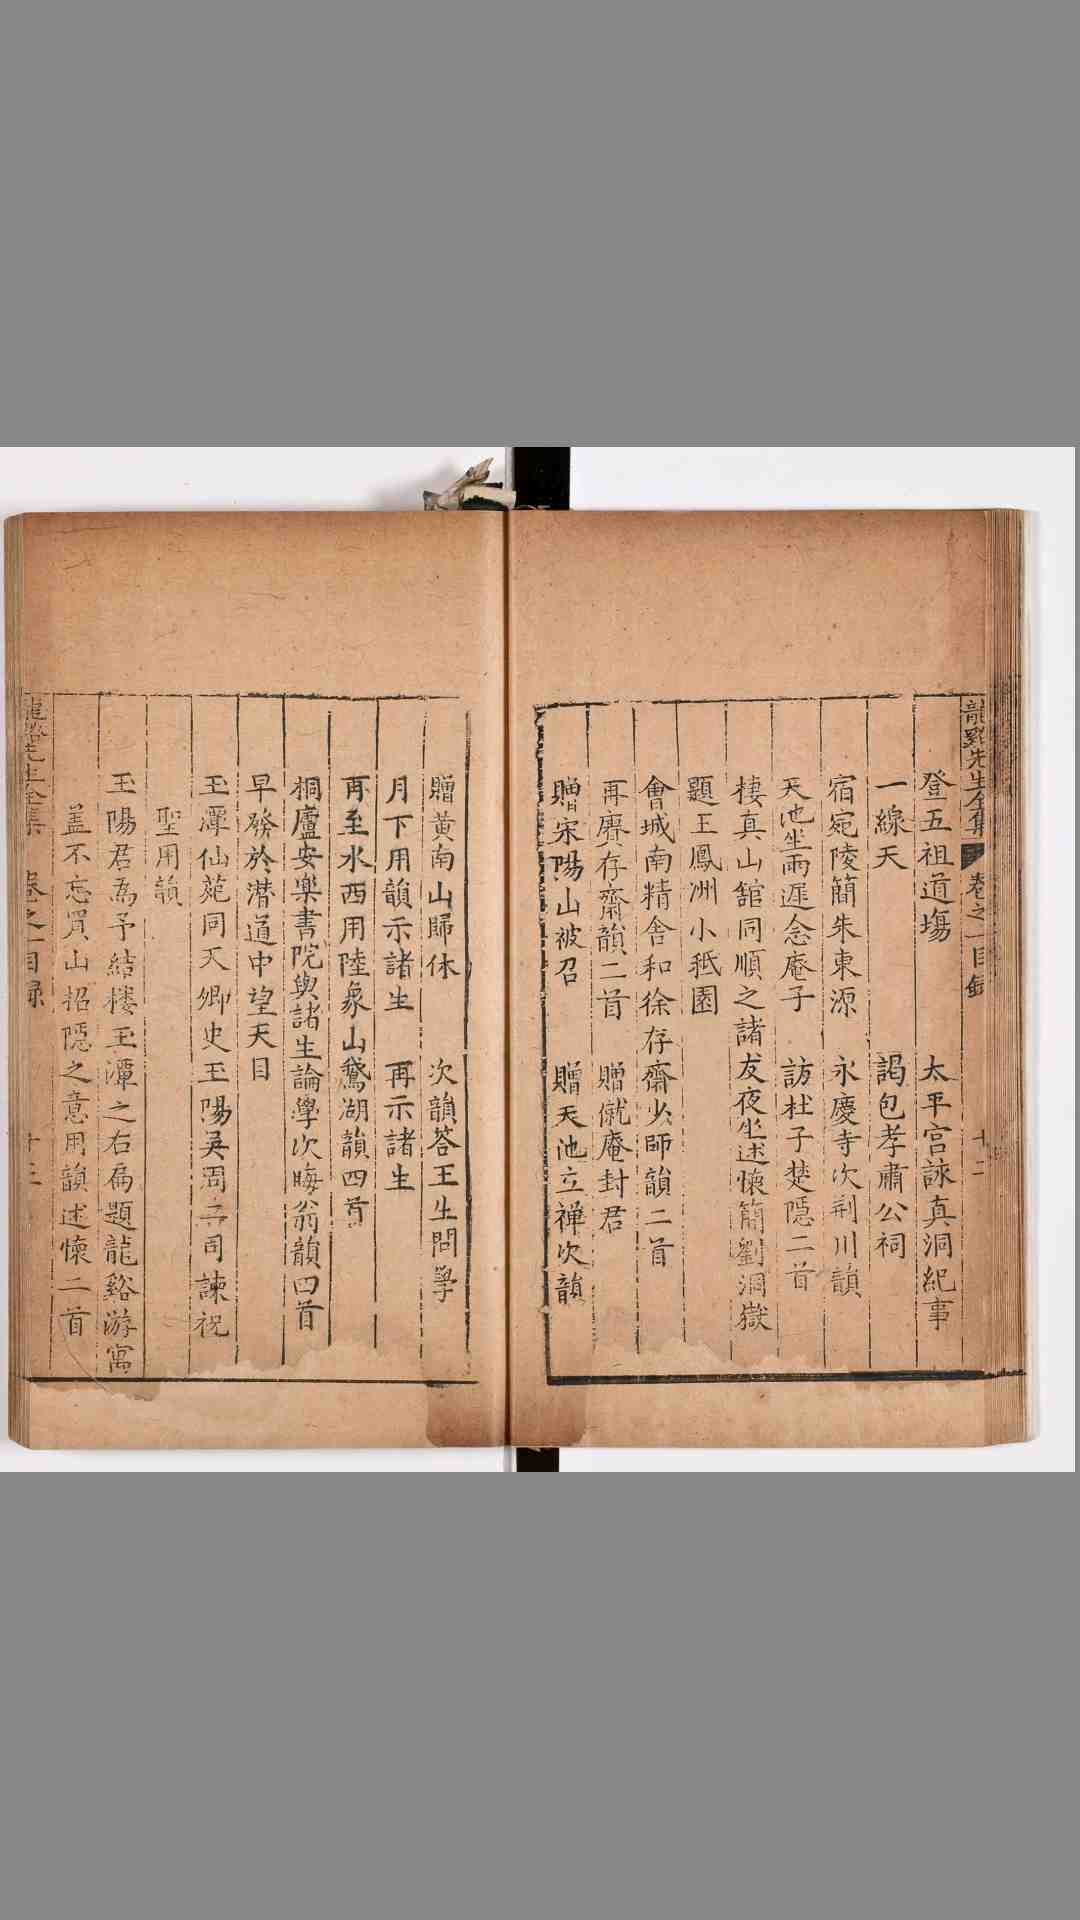 龍谿先生全集 卷之一目錄 十二
登五祖道塲 太平宮詠真洞紀事
一線天 謁包孝肅公祠
宿宛陵簡朱東源 永慶寺次荆川韻
天池坐雨遲念庵子 訪杜子楚隱二首
棲真山舘同順之諸友夜坐述懷簡劉洞嶽
題王鳳洲小秖園
會城南精舍和徐存齋少師韻二首
再賡存齋韻二首 贈僦庵封君
贈宋陽山被召 贈天池立禪次韻
贈黄南山歸休 次韻答王生問學
月下用韻示諸生 再示諸生
再至水西用陸象山鵝湖韻四首
桐廬安樂書院與諸生論學次晦翁韻四首
早發於潛道中望天目
玉潭仙苑同天卿史玉陽吳周二司諫祝
聖用韻
玉陽君為予結樓玉潭之右扁題龍谿游寓
盖不忘買山招隱之意用韻述懷二首
龍谿先生全集 卷之一目錄 十三